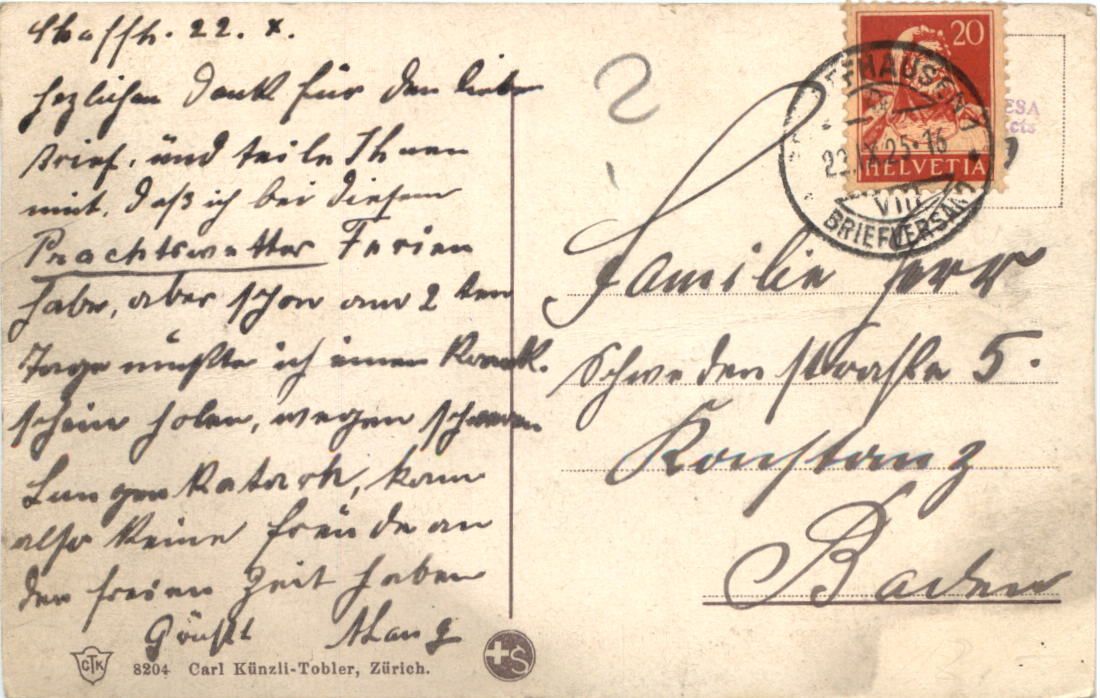 Schaffh. 22. X.
Herzlichen Dank für den lieben
Brief, und teile Ihnen
mit, daß ich bei diesem
Prachtswetter Ferien
habe, aber schon am 2 ten
Tage mußte ich einen Krank.
schein holen, wegen schweren
Lungenkatarh, kann
also keine Freude an
der freien Zeit haben
Grüßt
CTK 8204 Carl Künzli-Tobler, Zürich.
+S
20
HELVETIA
SCHAFFHAUSEN 1
22. X. 25-16
VIII
BRIEFVERSAND
Familie Herr
Schwedenstraße 5.
Konstanz
Baden